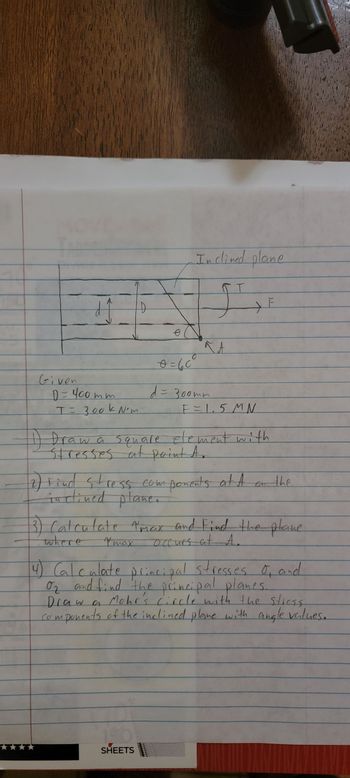 Inclined plane
T
F
d
D
θ
A
θ=60°
Given
D = 400 mm d = 300mm
T = 300 kN·m F = 1.5 MN
1) Draw a square element with
stresses at point A.
2) Find stress components at A on the
inclined plane.
3) Calculate τmax and Find the plane
where τmax occurs at A.
4) Calculate principal stresses σ₁ and
σ₂ and find the principal planes.
Draw a Mohr's circle with the stress
components of the inclined plane with angle values.
SHEETS